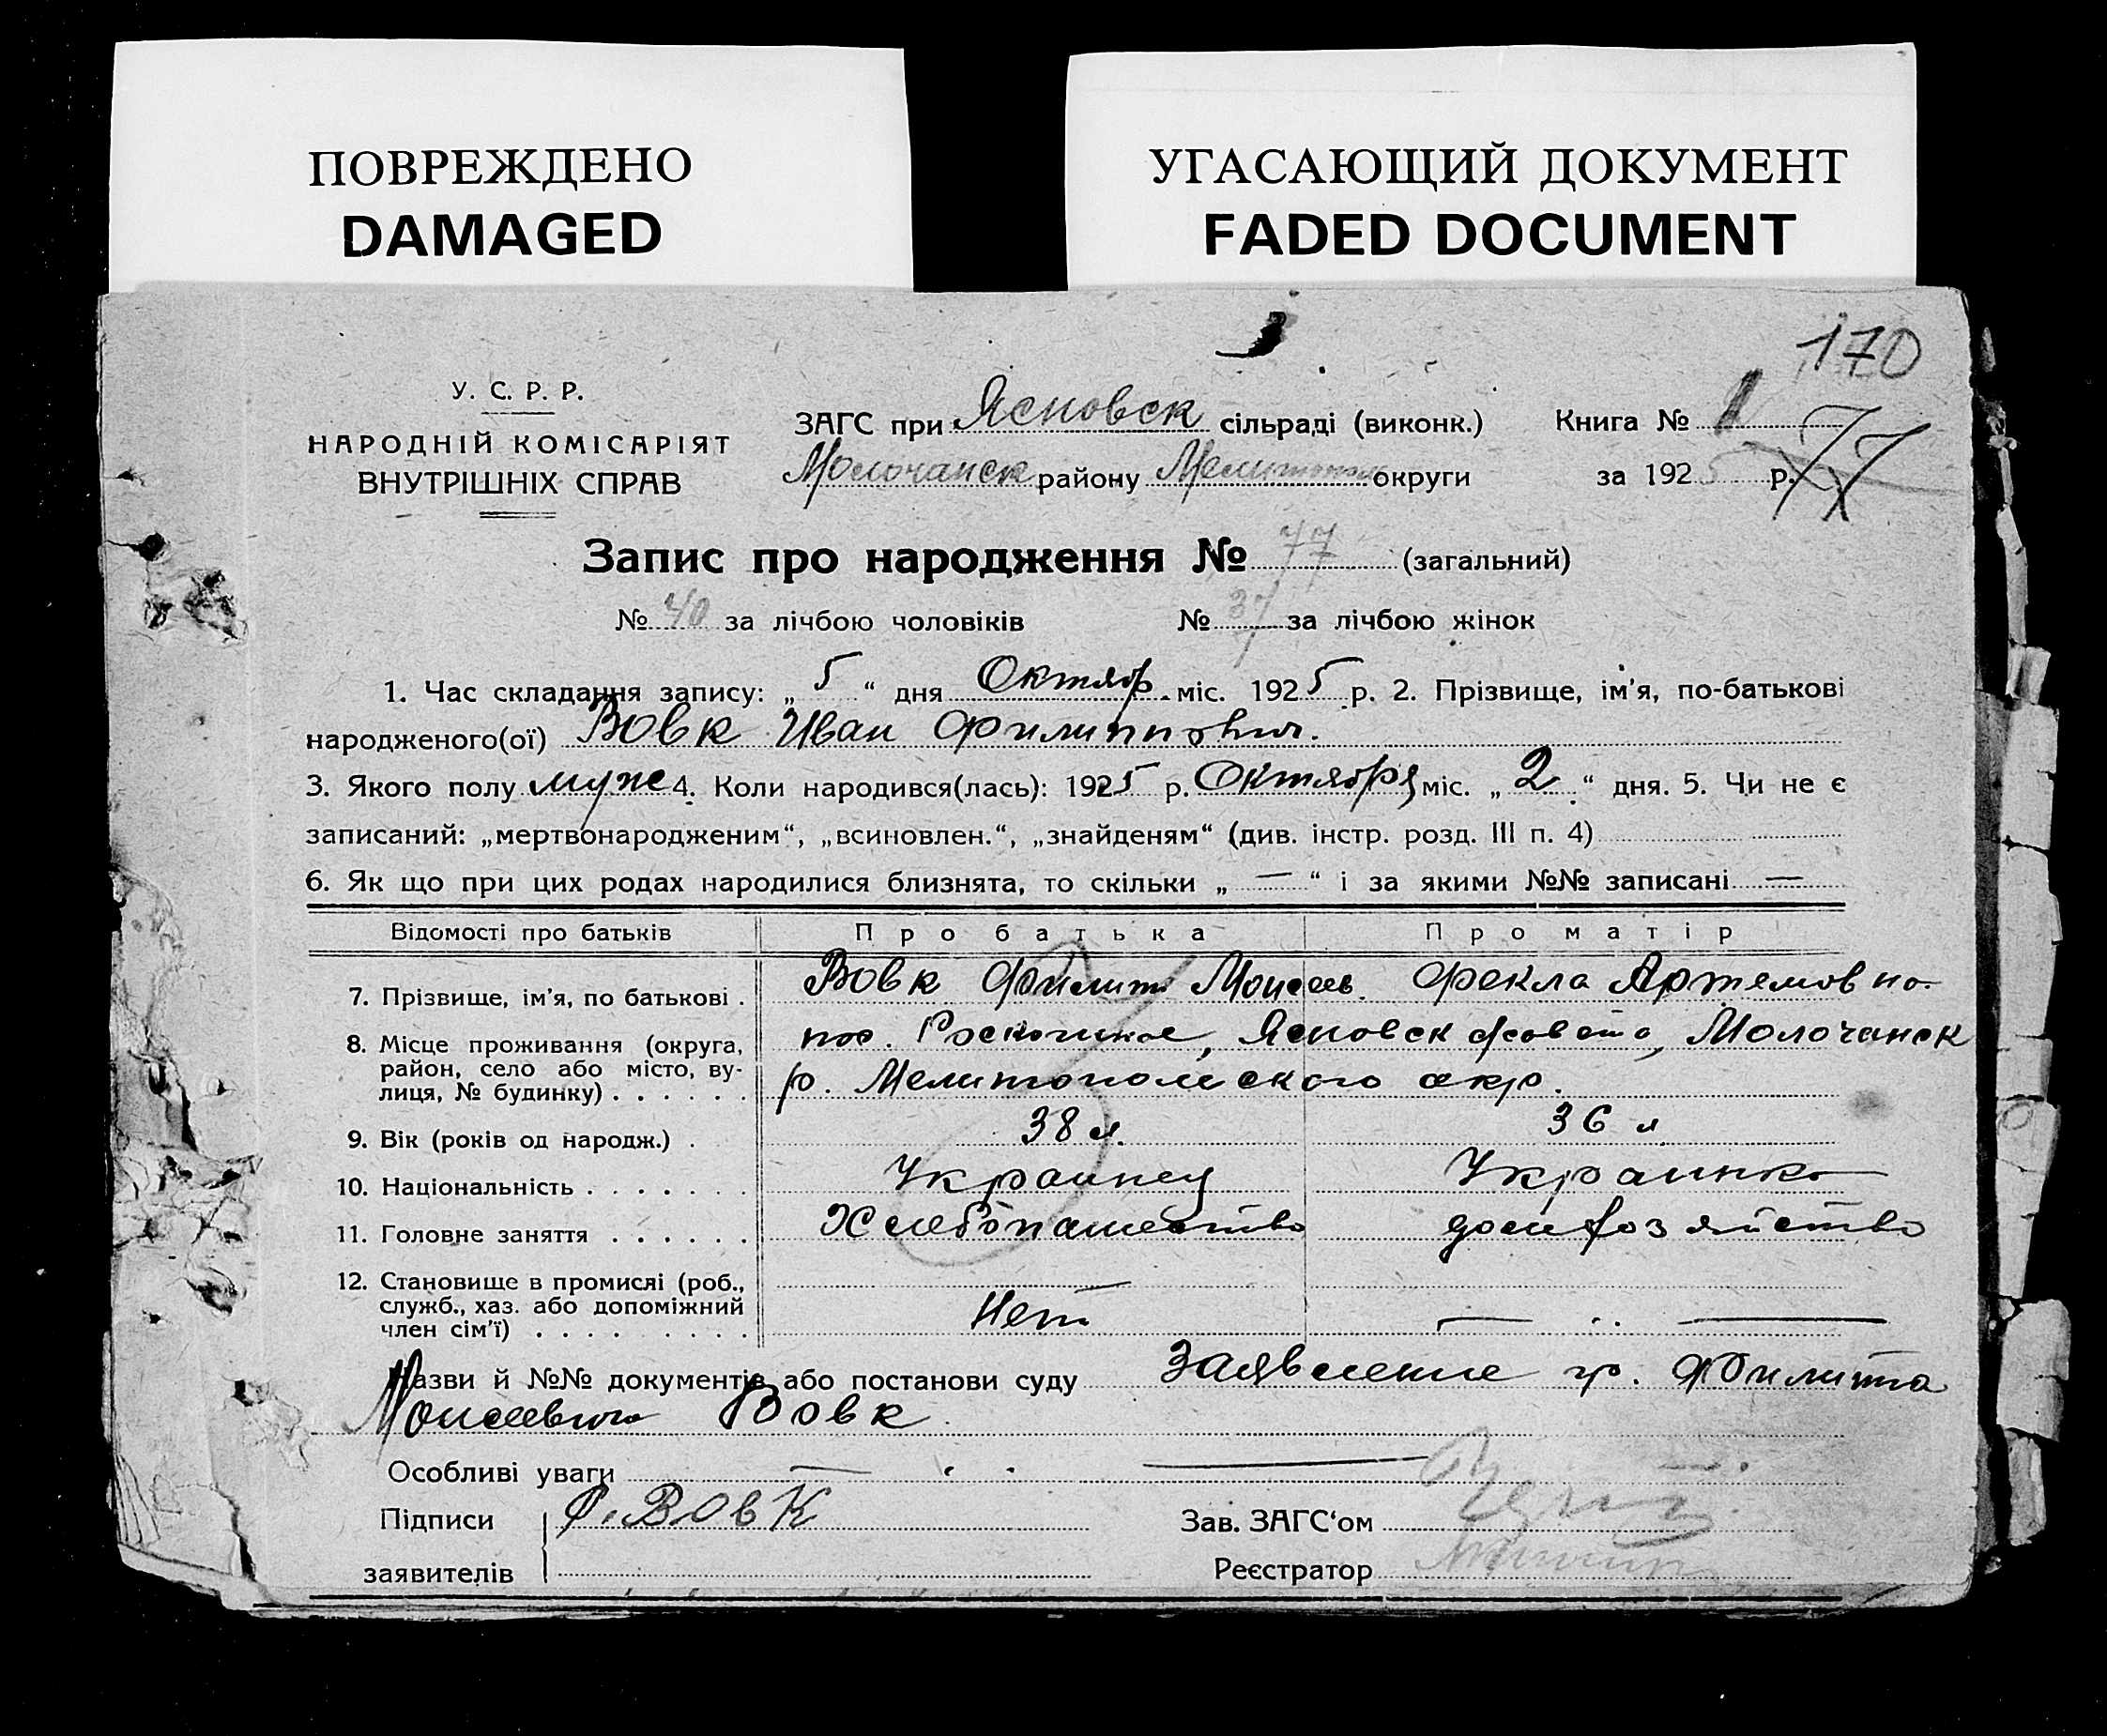 ПОВРЕЖДЕНО
DAMAGED
УГАСАЮЩИЙ ДОКУМЕНТ
FADED DOCUMENT
170
У. С. Р. Р.
НАРОДНІЙ КОМІСАРІЯТ
ВНУТРІШНІХ СПРАВ
ЗАГС при Ясновск сільраді (виконк.)
Молочанск району Мелитополь округи
Книга № 1
за 1925 р.
77
Запис про народження № 77 (загальний)
№ 40 за лічбою чоловіків № 37 за лічбою жінок
1. Час складання запису: „ 5 “ дня Октябр. міс. 1925 р. 2. Прізвище, ім'я, по-батькові
народженого(ої) Вовк Иван Филиппович.
3. Якого полу муж 4. Коли народився(лась): 1925 р. Октября міс. „ 2 “ дня. 5. Чи не є
записаний: „мертвонародженим“, „всиновлен.“, „знайденям“ (див. інстр. розд. III п. 4)
6. Як що при цих родах народилися близнята, то скільки „ — “ і за якими №№ записані —
Відомості про батьків Про батька Про матір
7. Прізвище, ім'я, по батькові . Вовк Филипп Моисеев. Фекла Артемовна
8. Місце проживання (округа, район, село або місто, вулиця, № будинку) . . . . . . пос. Роскошное, Ясновск Молочанск
р. Мелитопольского окр.
9. Вік (років од народж.) . 38 л. 36 л
10. Національність . . . . . . . Украинец Украинка
11. Головне заняття . . . . . . Хлебопашество домхозяйство
12. Становище в промислі (роб., служб., хаз. або допоміжний член сім'ї) . . . . . . . . . Нет
Назви й №№ документів або постанови суду Заявление гр. Филиппа
Моисеевича Вовк.
Особливі уваги
Підписи заявителів Ф. Вовк
Зав. ЗАГС‘ом
Реєстратор